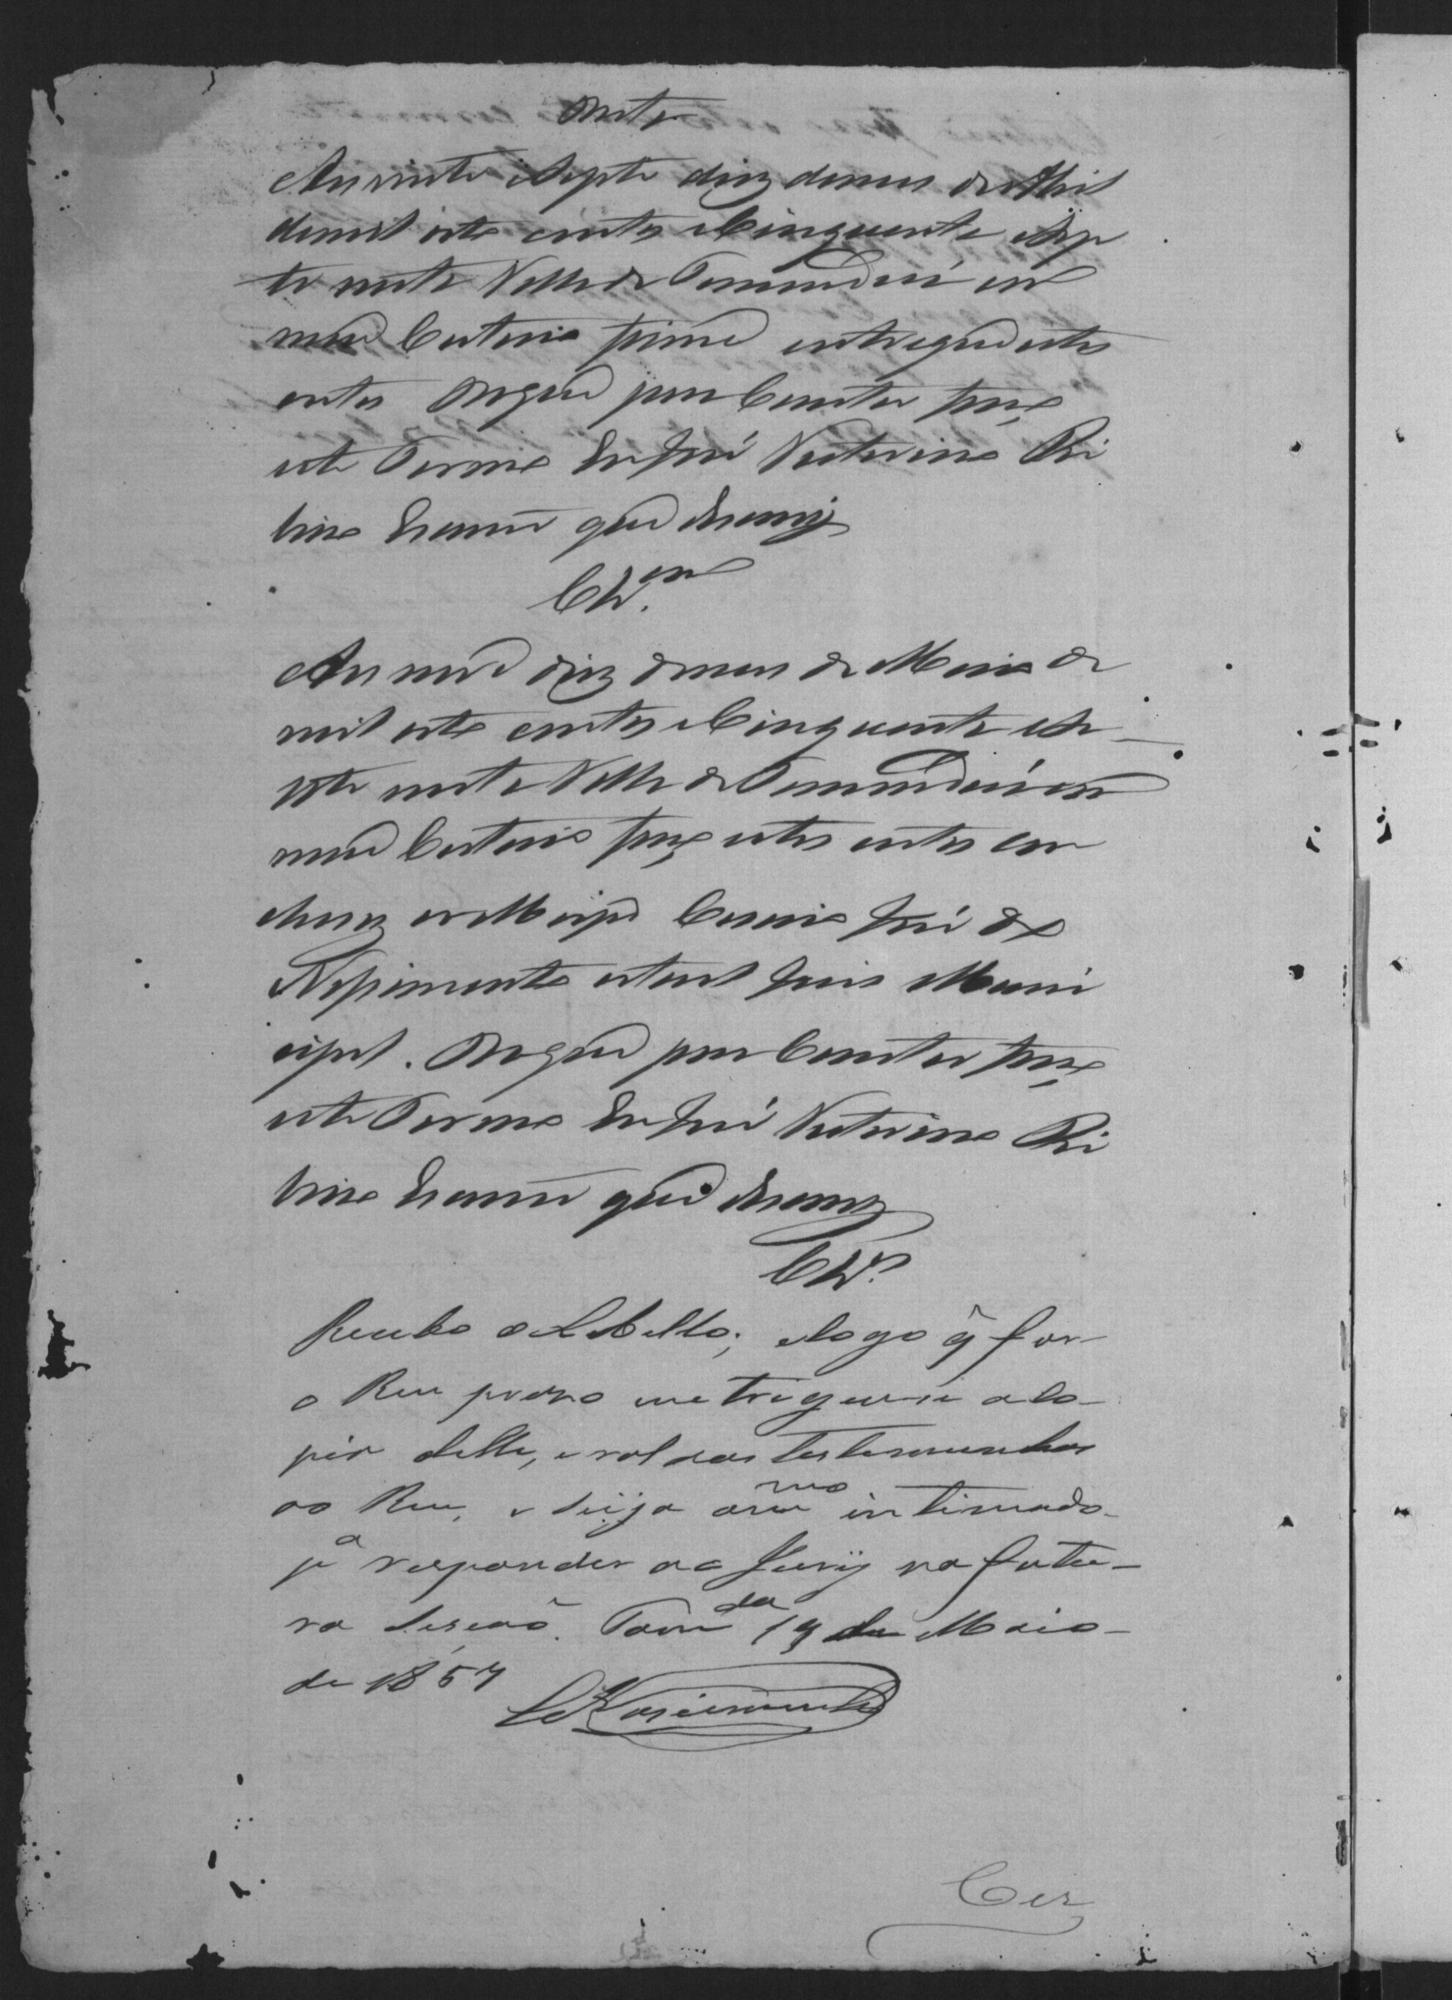 Data
Aos vinte e Septe dias do mes de Abril
de mil oito centos e Cincoenta e Sep
te nesta Villa de Tamanduá em
meu Cartorio forão entregues estes
autos do que para Constar faço
este Termo Eu José Victorino Ri
beiro Escrivão que Escrevy
Clz.am
Aos nove dias do mes de Maio de
mil oito centos e Cincoenta e Se
pte nesta Villa de Tamanduá em
meu Cartorio faço estes autos con
cluzos ao Meritissimo José do
Nascimento actual Juis Muni
cipal. do que para Constar faço
este Termo Eu José Victorino Ri
beiro Escrivão que Escrevy
Clz.
Recebo o Libello; e logo q̃ for
o Reu prezo entregue-se a Co-
pia delle, e rol das testemunhas
ao Reu, e seja o mmo intimado
pa responder ao Jury na futu-
ra Sessão. Tamda 19 de Maio
de 1857
Nascimento
Cer